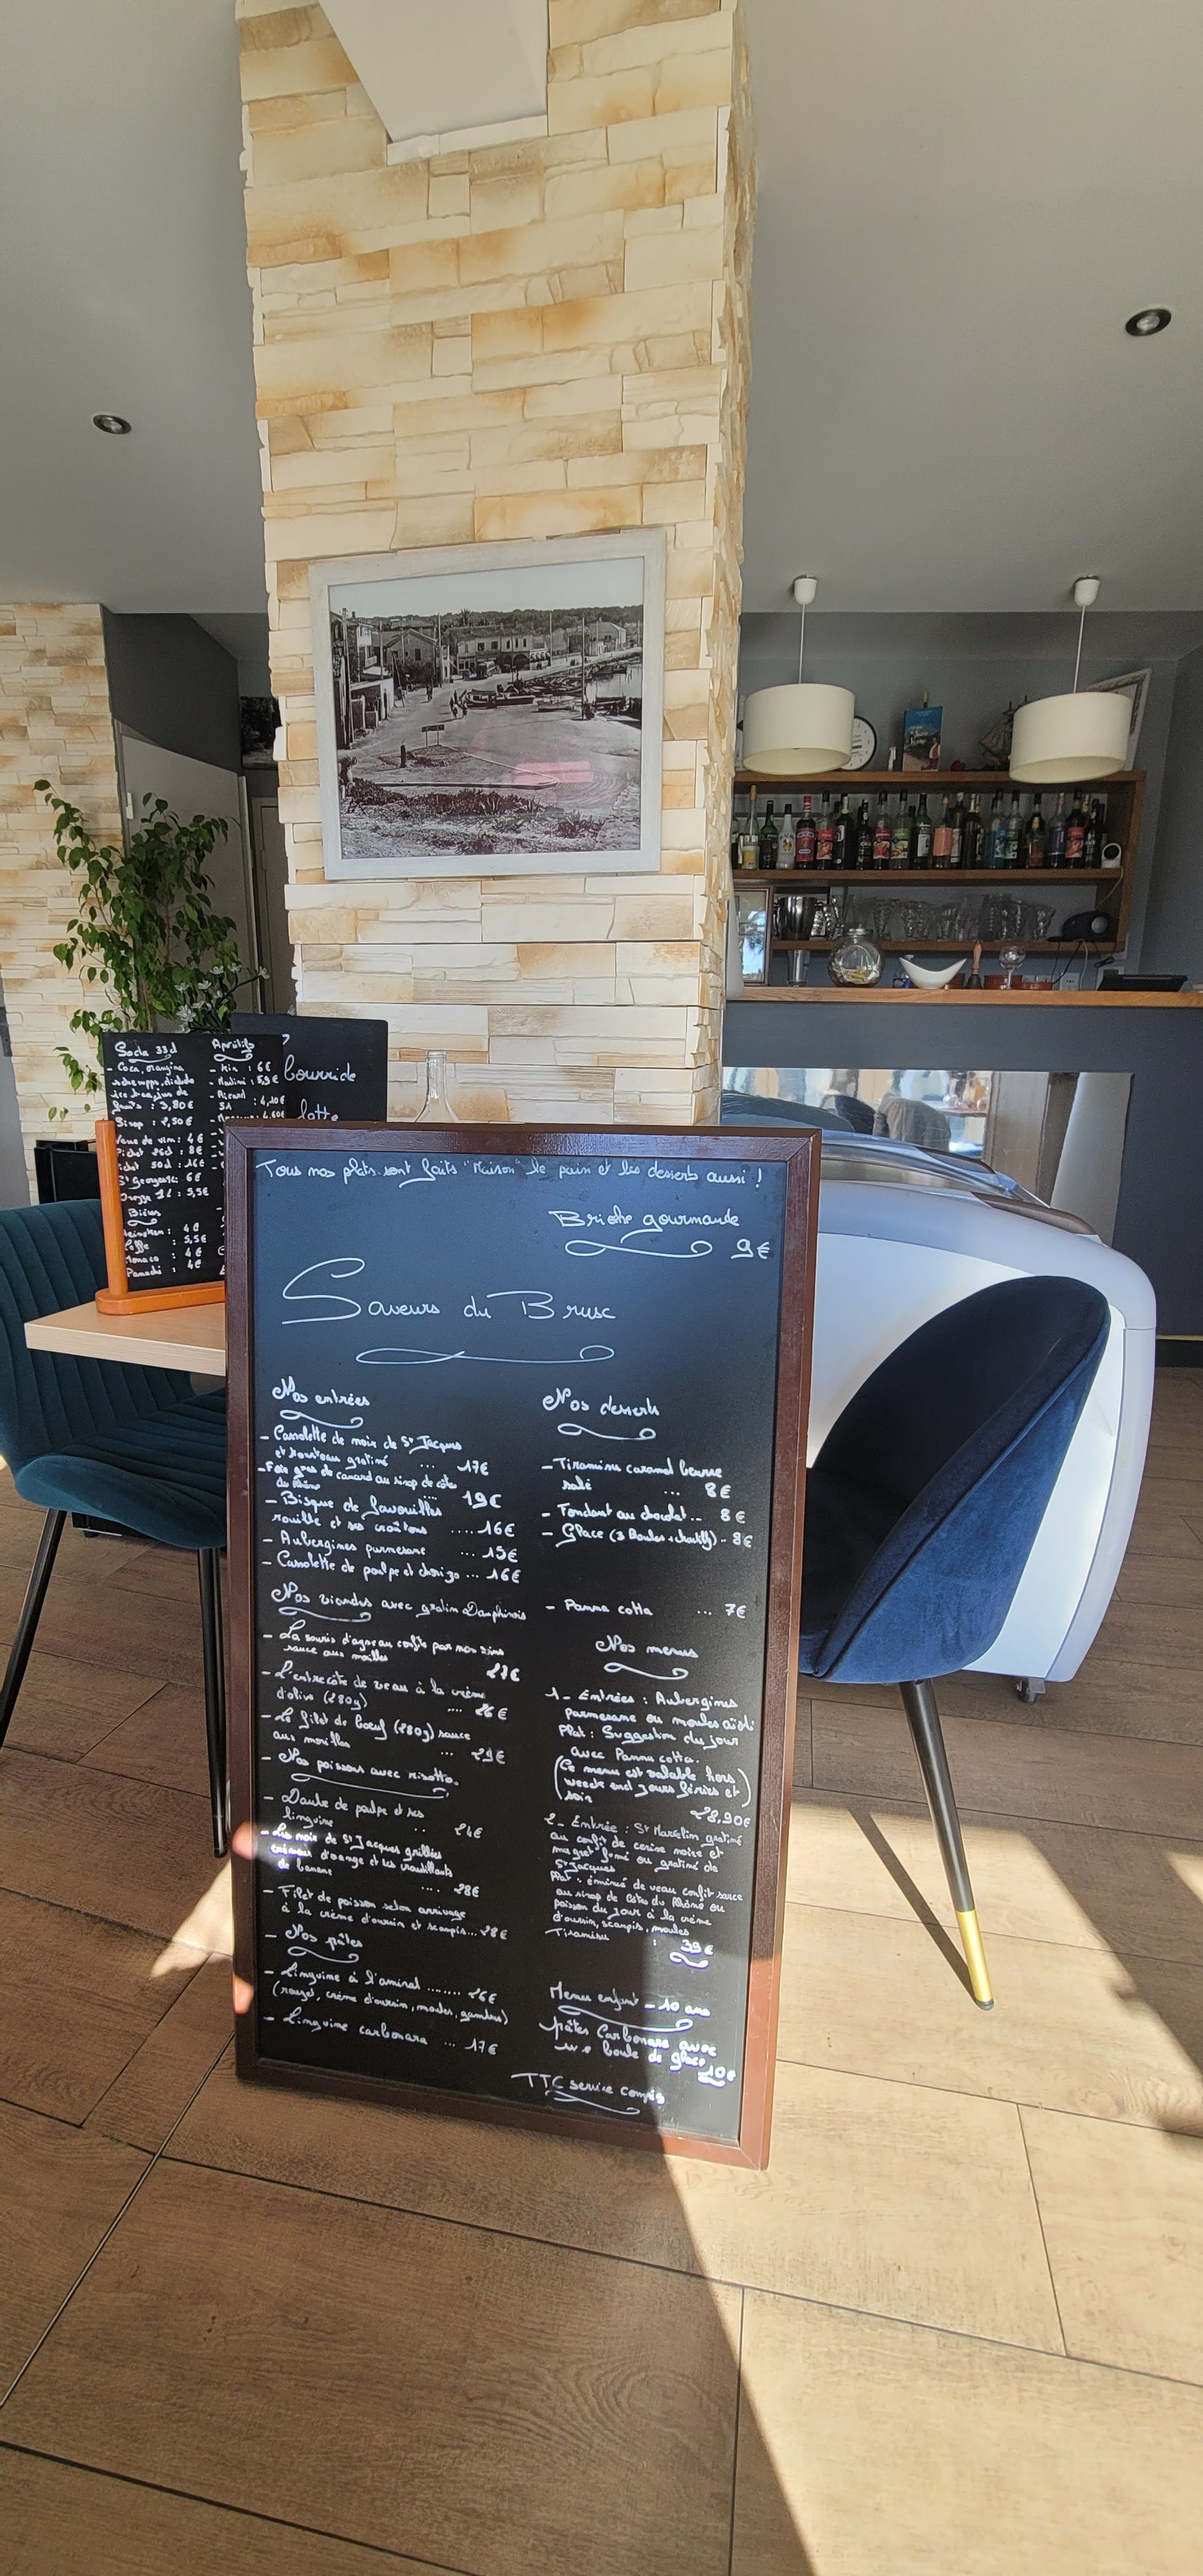 Soda 33cl
- Coca, orangina
Sirop : 2,50€
Verre de vin : 4€
Pichet 25cl : 8€
Pichet 50cl : 16€
St Georges 1L : 6€
Bières
Heineken : 4€
Leffe : 5,5€
Monaco : 4€
Panaché : 4€
Apéritifs
- Kir : 6€
- Martini : 5,5€
- Ricard
51 : 4,10€
bourride
lotte
Tous nos plats sont faits "Maison" le pain et les desserts aussi !
Brioche gourmande
9€
Saveurs du Brusc
Nos entrées
- Cassolette de noix de St Jacques
et gratiné ... 17€
- Foie gras de canard au sirop de côtes
du Rhône .... 19€
- Bisque de favouilles
rouille et ses croûtons .... 16€
- Aubergines parmesane ... 15€
- Cassolette de poulpe et chorizo ... 16€
Nos viandes avec gratin Dauphinois
- La souris d'agneau confite par nos soins
sauce aux morilles
27€
- L'entrecôte de veau à la crème
d'olive (280g) .... 26€
- Le filet de boeuf (280g) sauce
aux morilles ... 29€
- Nos poissons avec risotto.
- Daube de poulpe et ses
linguine .. 24€
- Les noix de St Jacques grillées
d'orange et les croustillants
de banane .... 28€
- Filet de poisson selon arrivage
à la crème d'oursin et scampis... 28€
- Nos pâtes
- Linguine à l'amiral ........ 26€
(rouget, crème d'oursin, moules, gambas)
- Linguine carbonara ... 17€
Nos desserts
- Tiramisu caramel beurre
salé ... 8€
- Fondant au chocolat .. 8€
- Glace (3 Boules + chantilly) .. 8€
- Panna cotta ... 7€
Nos menus
1_ Entrées : Aubergines
parmesane ou moules aïoli
Plat : Suggestion du jour
avec Panna cotta.
(Ce menu est valable hors
week end jours fériés et
soir)
28,90€
2_ Entrée : St Marcelin gratiné
au confit de cerise noire et
magret fumé ou gratiné de
St Jacques
Plat : émincé de veau confit sauce
au sirop de Côtes du Rhône ou
poisson du jour à la crème
d'oursin, scampis, moules
Tiramisu : 39€
Menu enfant - 10 ans
Pâtes Carbonara avec
une boule de glace
10€
TTC service compris